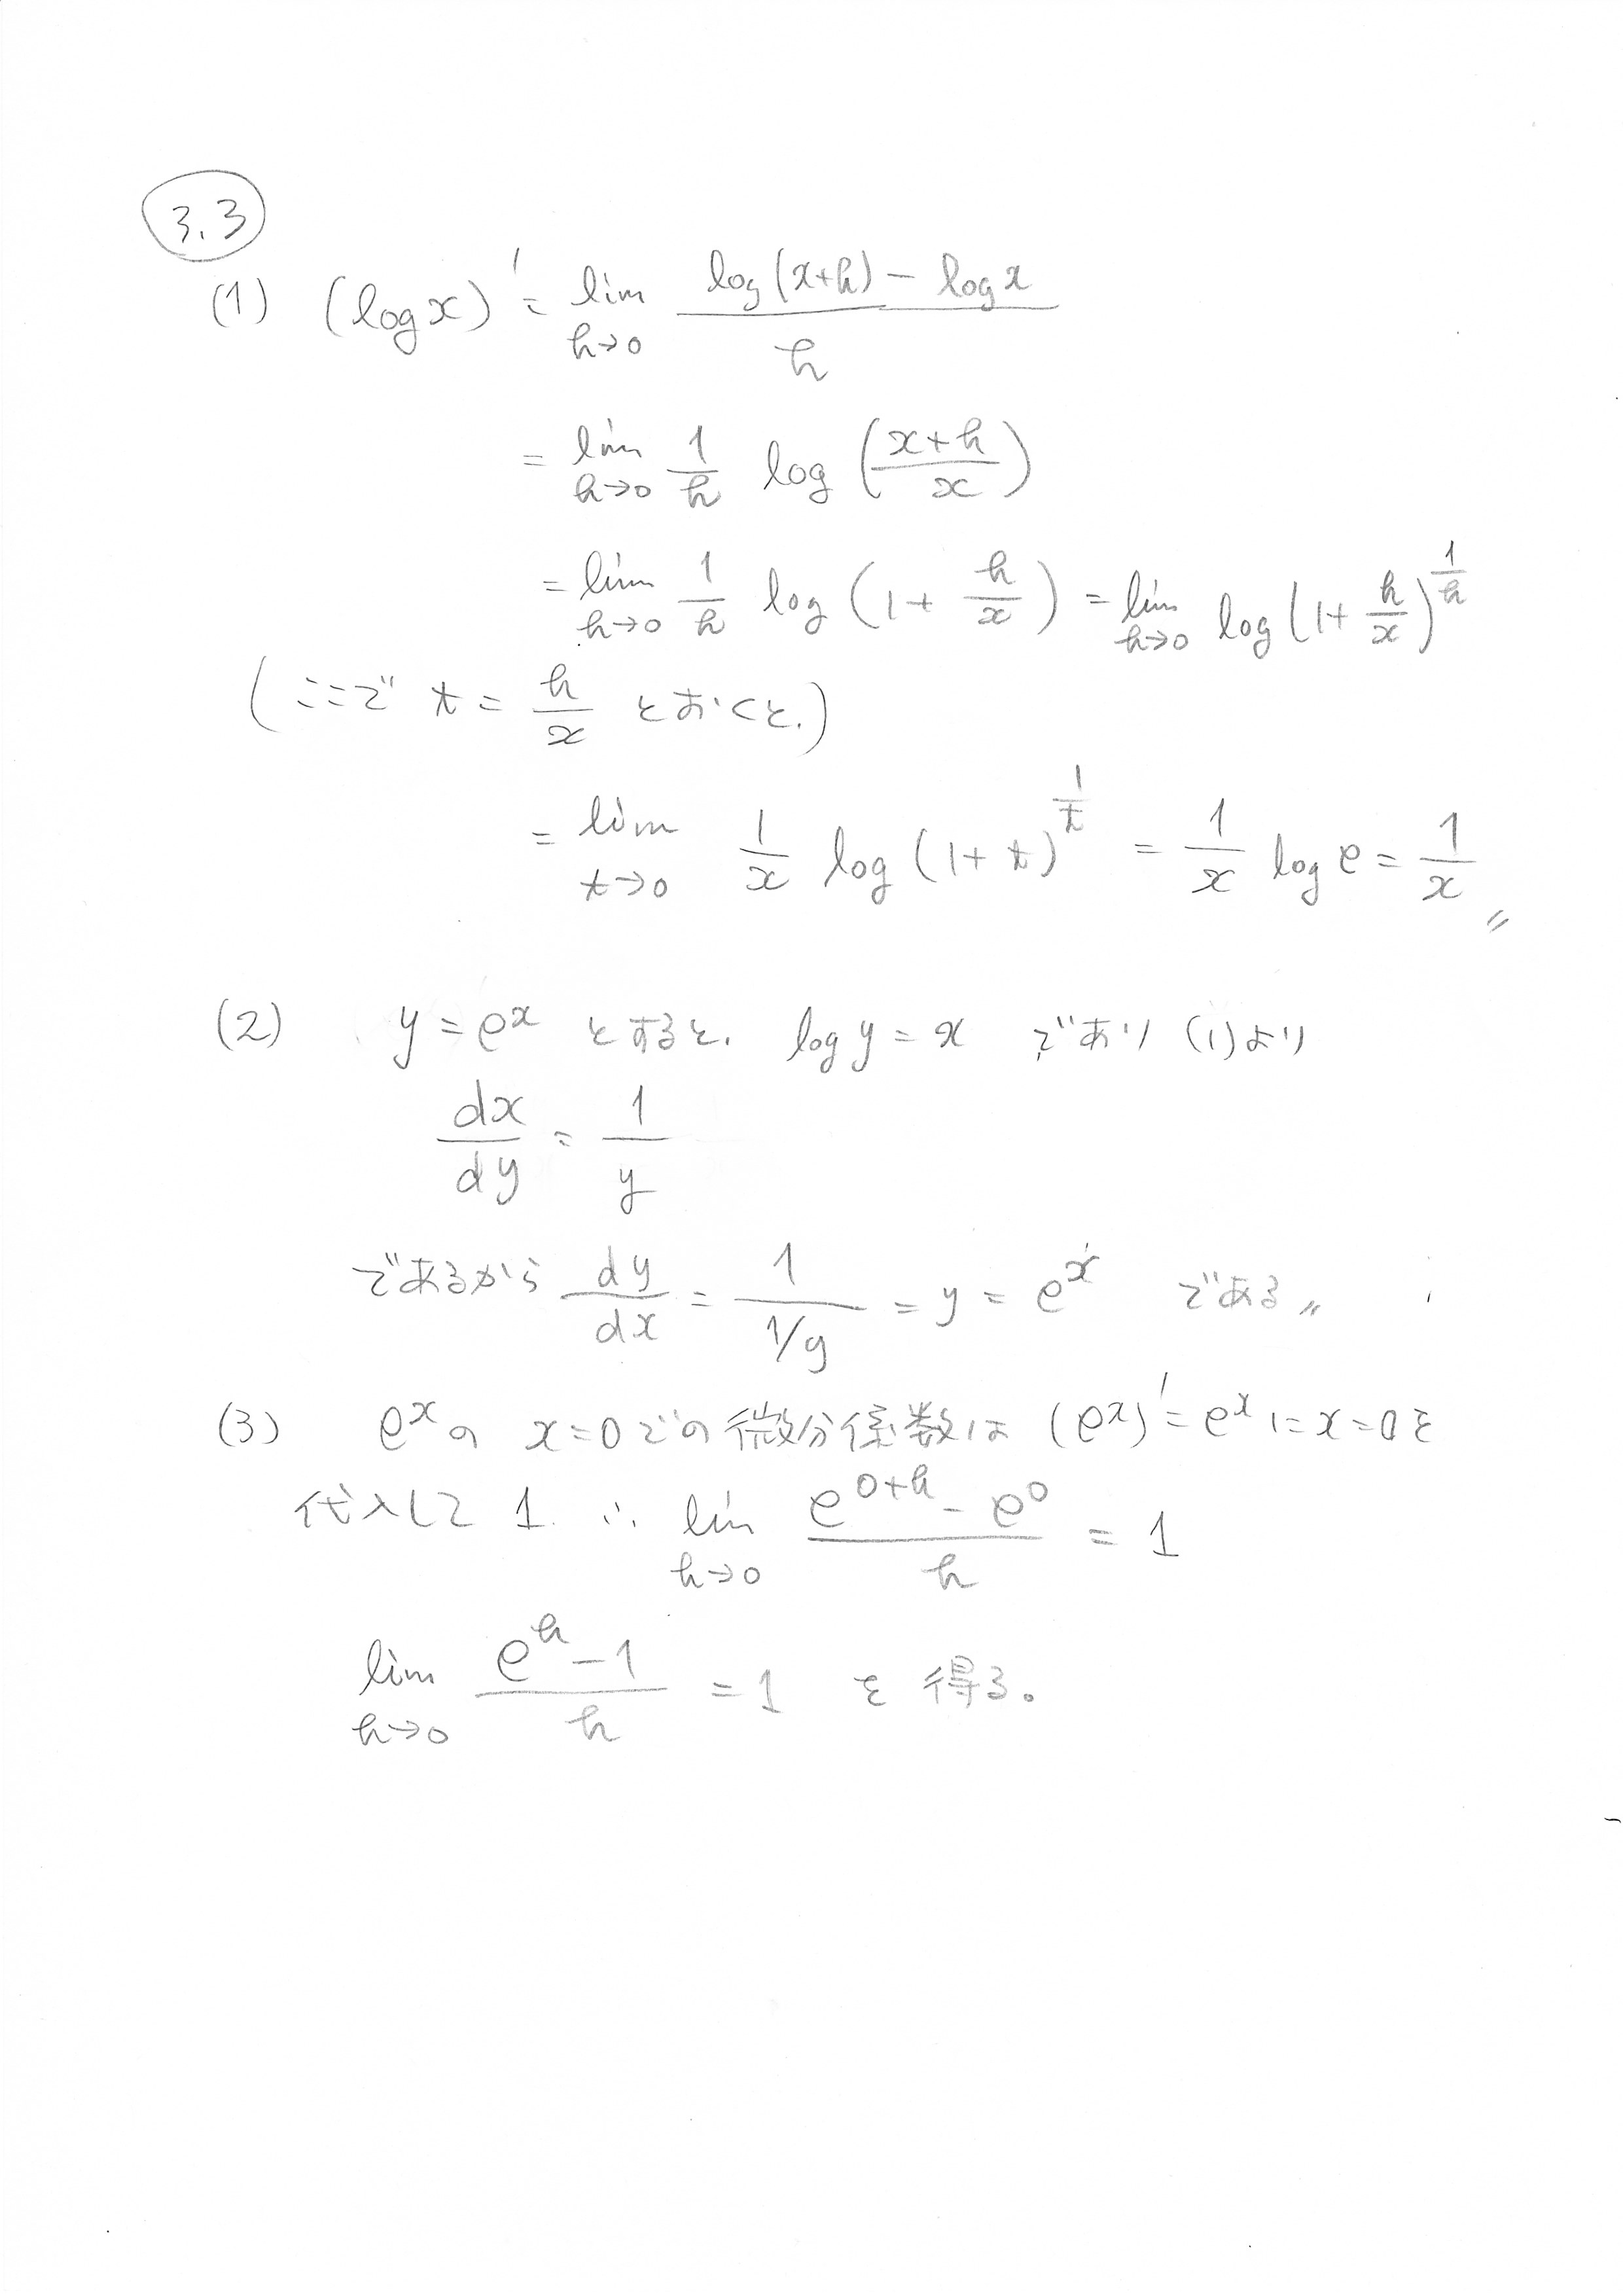 3.3
(1) (log x)' = lim_{h→0} \frac{log(x+h) - log x}{h}
= lim_{h→0} \frac{1}{h} log (\frac{x+h}{x})
= lim_{h→0} \frac{1}{h} log (1 + \frac{h}{x}) = lim_{h→0} log (1 + \frac{h}{x})^{\frac{1}{h}}
(ここで t = \frac{h}{x} とおくと.)
= lim_{t→0} \frac{1}{x} log (1 + t)^{\frac{1}{t}} = \frac{1}{x} log e = \frac{1}{x} 〃
(2) y = e^x とすると. log y = x であり (1)より
\frac{dx}{dy} = \frac{1}{y}
であるから \frac{dy}{dx} = \frac{1}{1/y} = y = e^x である〃
(3) e^x の x=0 での微分係数は (e^x)' = e^x に x=0を
代入して 1. ∴ lim_{h→0} \frac{e^{0+h} - e^0}{h} = 1
lim_{h→0} \frac{e^h - 1}{h} = 1 を得る。